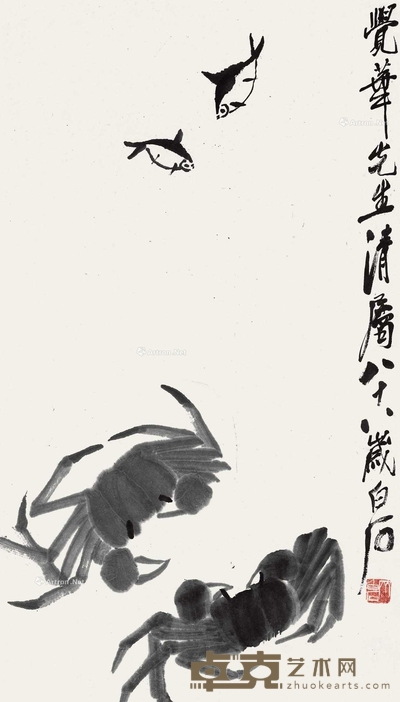 覺華先生清屬八十八歲白石
Artron.Net
卓克艺术网
www.zhuokearts.com